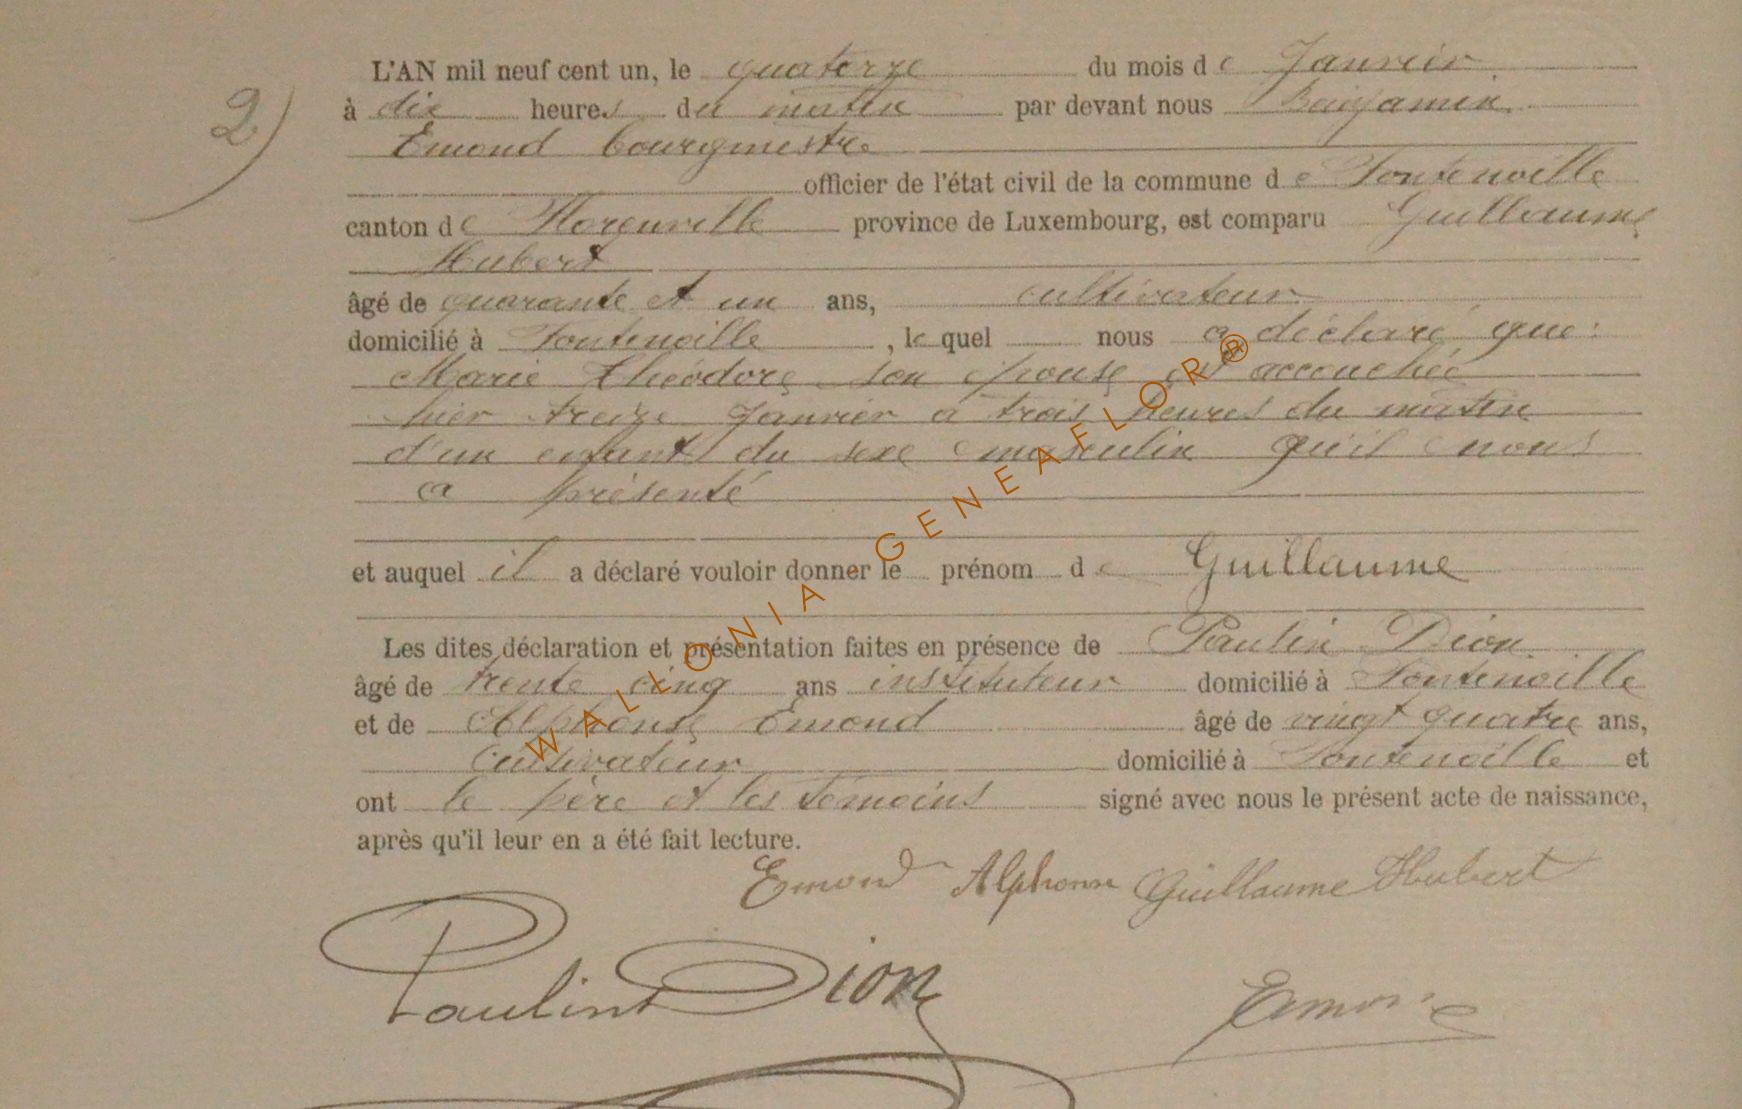 2)
L'AN mil neuf cent un, le quatorze du mois de Janvier
à dix heures du matin par devant nous Benjamin
Emond bourgmestre
officier de l'état civil de la commune de Fontenoille
canton de Florenville province de Luxembourg, est comparu Guillaume
Hubert
âgé de quarante et un ans, cultivateur
domicilié à Fontenoille, lequel nous a déclaré que:
Marie Théodore son épouse est accouchée
hier treize Janvier à trois heures du matin
d'un enfant du sexe masculin qu'il nous
a présenté
et auquel il a déclaré vouloir donner le prénom de Guillaume
Les dites déclaration et présentation faites en présence de Paulin Dion
âgé de trente cinq ans instituteur domicilié à Fontenoille
et de Alphonse Emond âgé de vingt quatre ans,
Cultivateur domicilié à Fontenoille et
ont le père et les témoins signé avec nous le présent acte de naissance,
après qu'il leur en a été fait lecture.
Emond Alphonse Guillaume Hubert
Paulin Dion
Emond
WALLONIA GENEAFLOR®